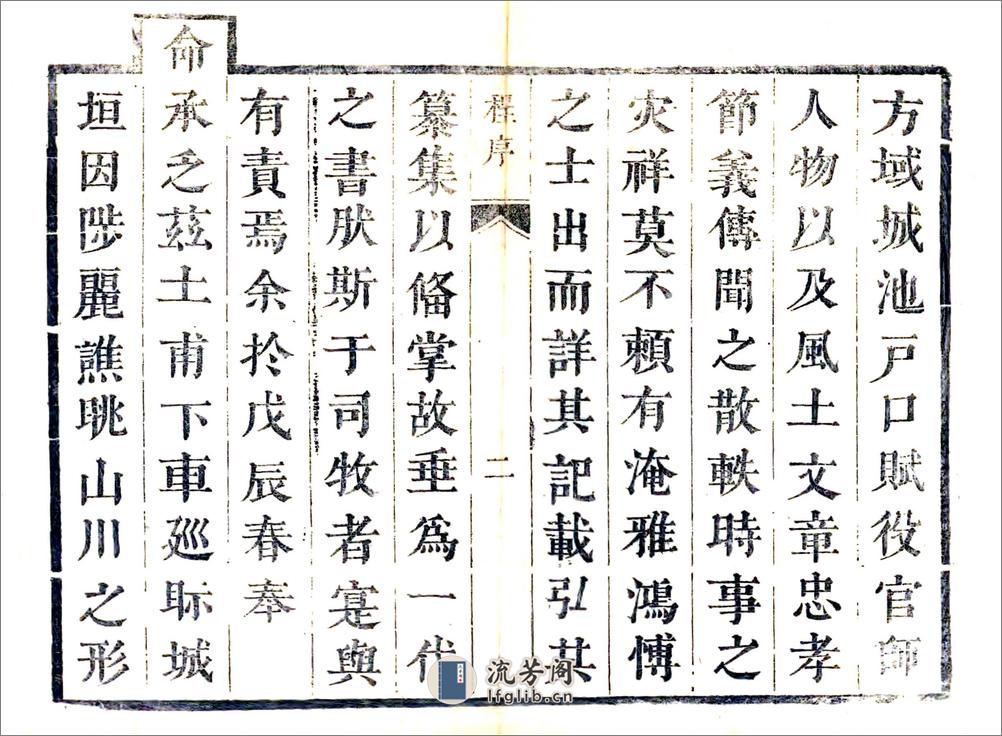 方域城池戸口賦役官師
人物以及風土文章忠孝
節義傳聞之散軼時事之
灾祥莫不頼有淹雅鴻博
之士出而詳其記載引其
程序
二
纂集以偹掌故垂爲一代
之書肰斯于司牧者寔與
有責焉余扵戊辰春奉
命
承乏兹土甫下車廵眎城
垣因陟麗譙眺山川之形
流芳阁
lfglib.cn